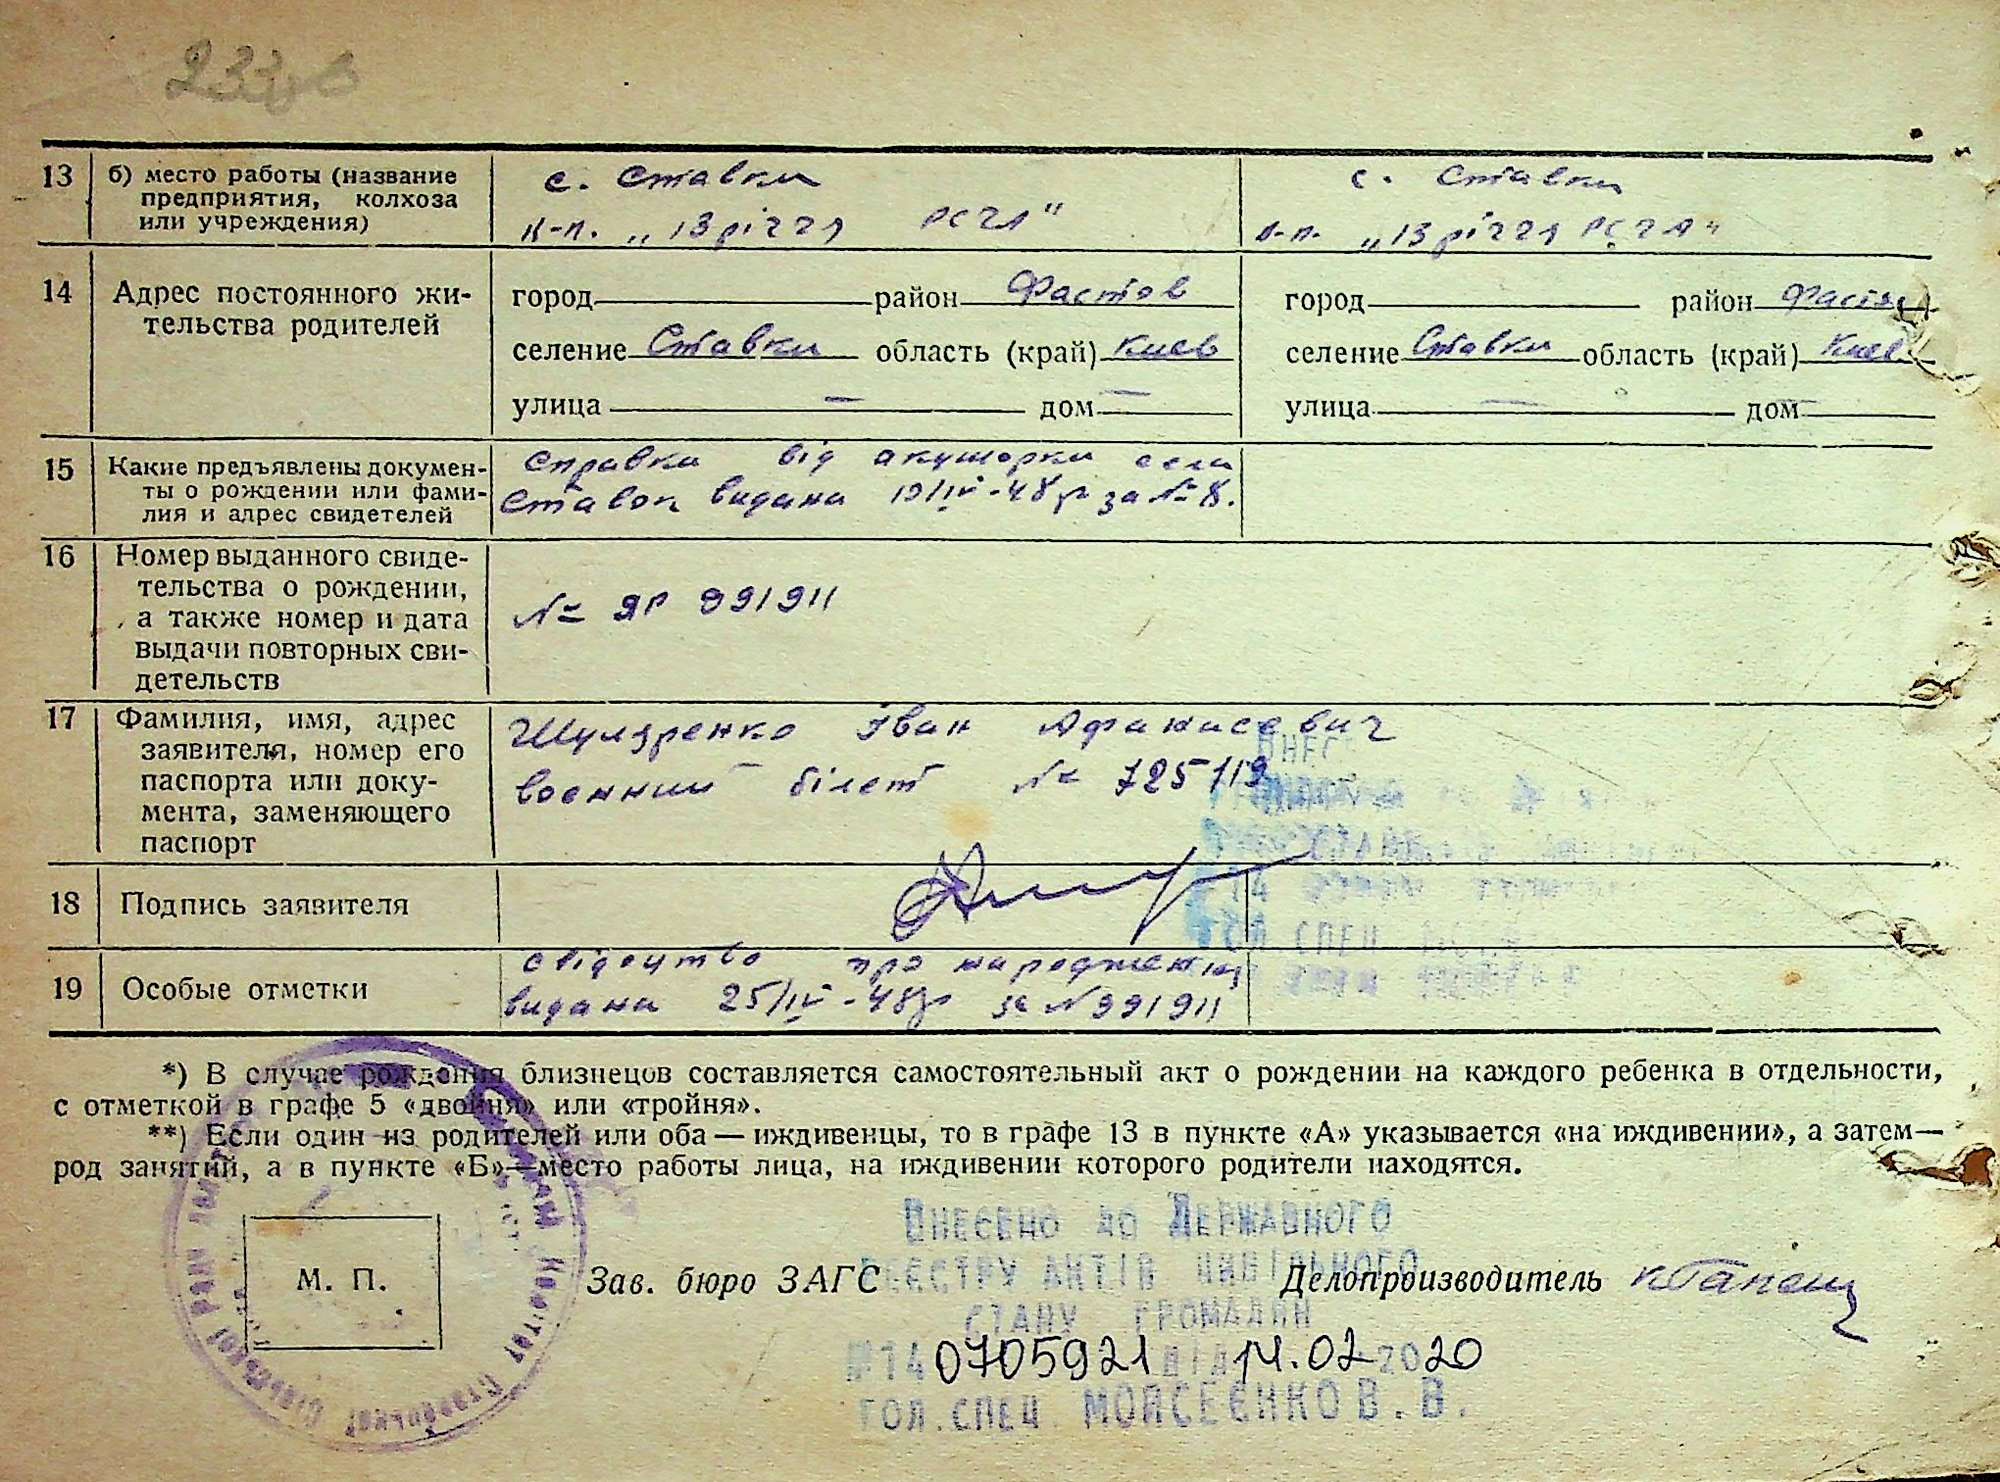 13 б) место работы (название предприятия, колхоза или учреждения)
с. Ставки
к-п. „13 річчя РСЧА"
с. Ставки
к-п. „13 річчя РСЧА"
14 Адрес постоянного жи-
тельства родителей
город район Фастов
селение Ставки область (край) Киев
улица — дом —
город район Фастов
селение Ставки область (край) Киев
улица — дом
15 Какие предъявлены докумен-
ты о рождении или фами-
лия и адрес свидетелей
Справка від акушорки села
Ставок видана 19/IV-48р за № 8.
16 Номер выданного свиде-
тельства о рождении,
а также номер и дата
выдачи повторных сви-
детельств
№ ЯР 991911
17 Фамилия, имя, адрес
заявителя, номер его
паспорта или доку-
мента, заменяющего
паспорт
Шуляренко Іван Афанасевич
воєнний білет № 725119
18 Подпись заявителя
19 Особые отметки
свідоцтво про народження
видана 25/IV-48р за № 991911
*) В случае рождения близнецов составляется самостоятельный акт о рождении на каждого ребенка в отдельности,
с отметкой в графе 5 «двойня» или «тройня».
**) Если один из родителей или оба — иждивенцы, то в графе 13 в пункте «А» указывается «на иждивении», а затем—
род занятий, а в пункте «Б»—место работы лица, на иждивении которого родители находятся.
М. П.
Зав. бюро ЗАГС
Делопроизводитель
Внесено до Державного
реєстру актів цивільного
стану громадян
№14 0705921 від 14.02 2020
гол. спец. Мойсеєнко В. В.